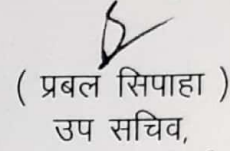 ( प्रबल सिपाहा )
उप सचिव,